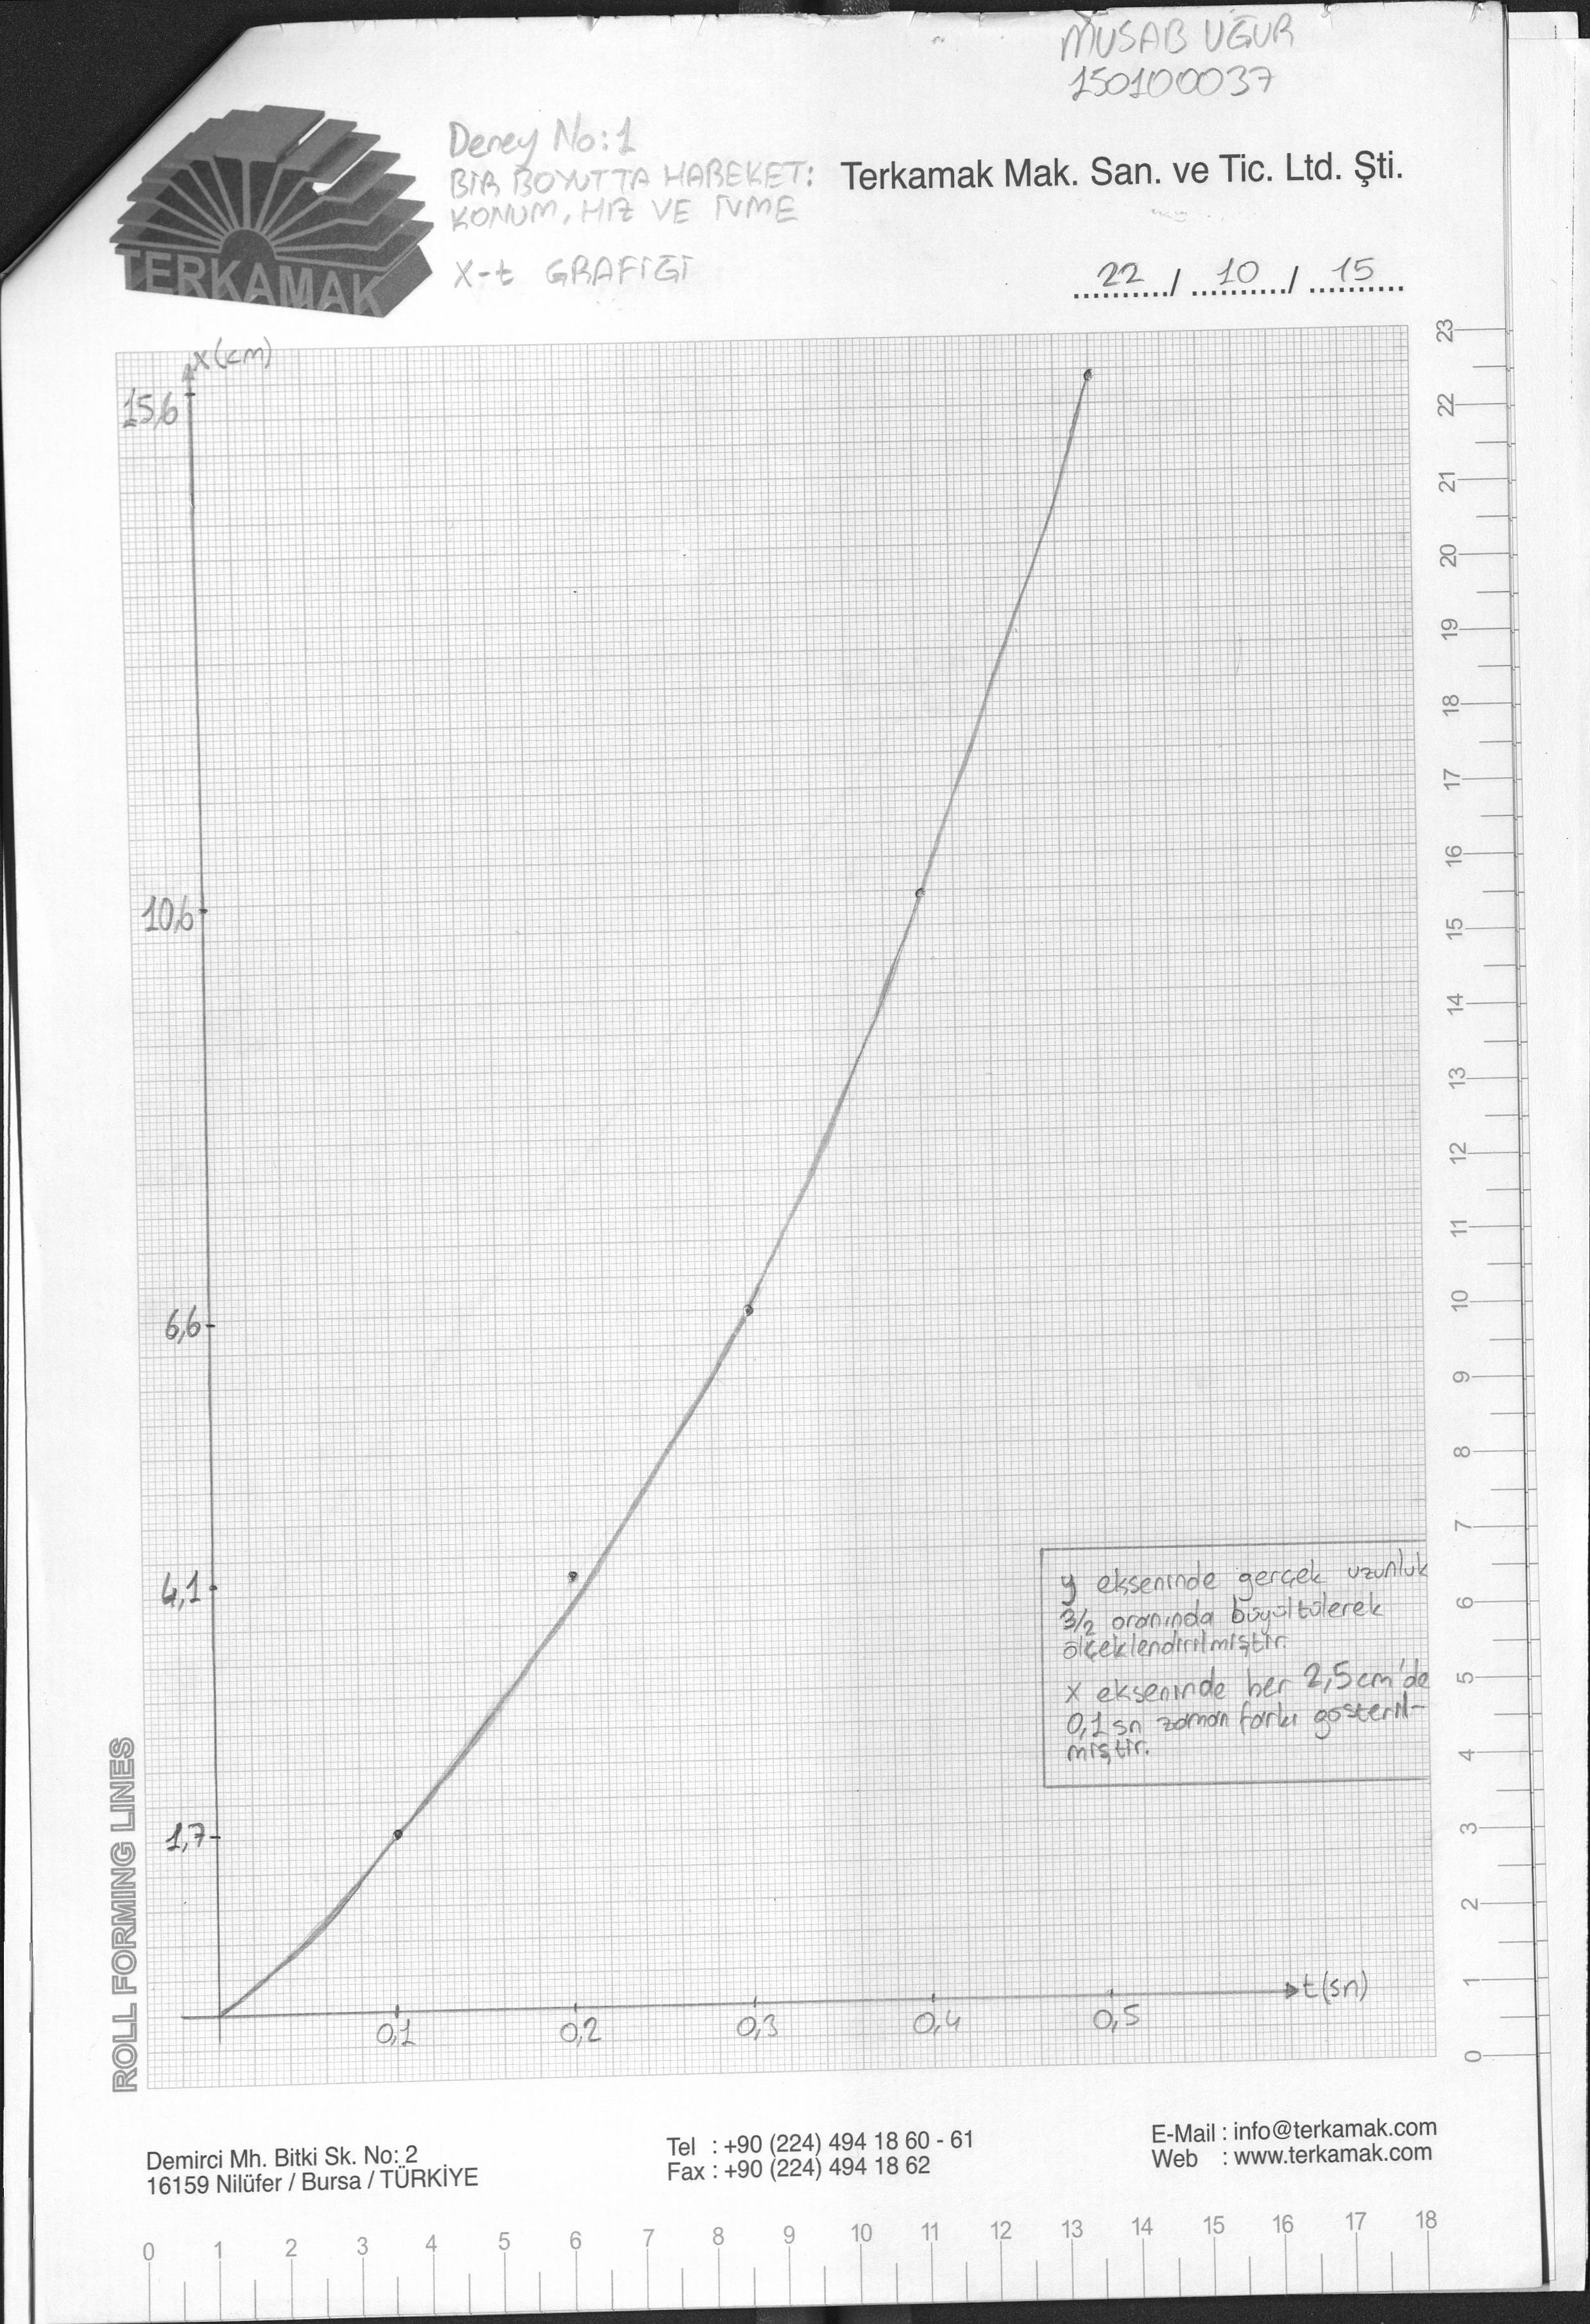 MUSAB UĞUR
150100037
Deney No:1
BİR BOYUTTA HAREKET:
KONUM, HIZ VE İVME
X-t GRAFİĞİ
Terkamak Mak. San. ve Tic. Ltd. Şti.
22 / 10 / 15
TERKAMAK
x(cm)
15,6
10,6
6,6
4,1
1,7
0,1 0,2 0,3 0,4 0,5
t(sn)
y ekseninde gerçek uzunluk
3/2 oranında büyültülerek
ölçeklendirilmiştir.
x ekseninde her 2,5cm'de
0,1 sn zaman farkı gösteril-
miştir.
23
22
21
20
19
18
17
16
15
14
13
12
11
10
9
8
7
6
5
4
3
2
1
0
ROLL FORMING LINES
Demirci Mh. Bitki Sk. No: 2
16159 Nilüfer / Bursa / TÜRKİYE
Tel : +90 (224) 494 18 60 - 61
Fax : +90 (224) 494 18 62
E-Mail : info@terkamak.com
Web : www.terkamak.com
0 1 2 3 4 5 6 7 8 9 10 11 12 13 14 15 16 17 18